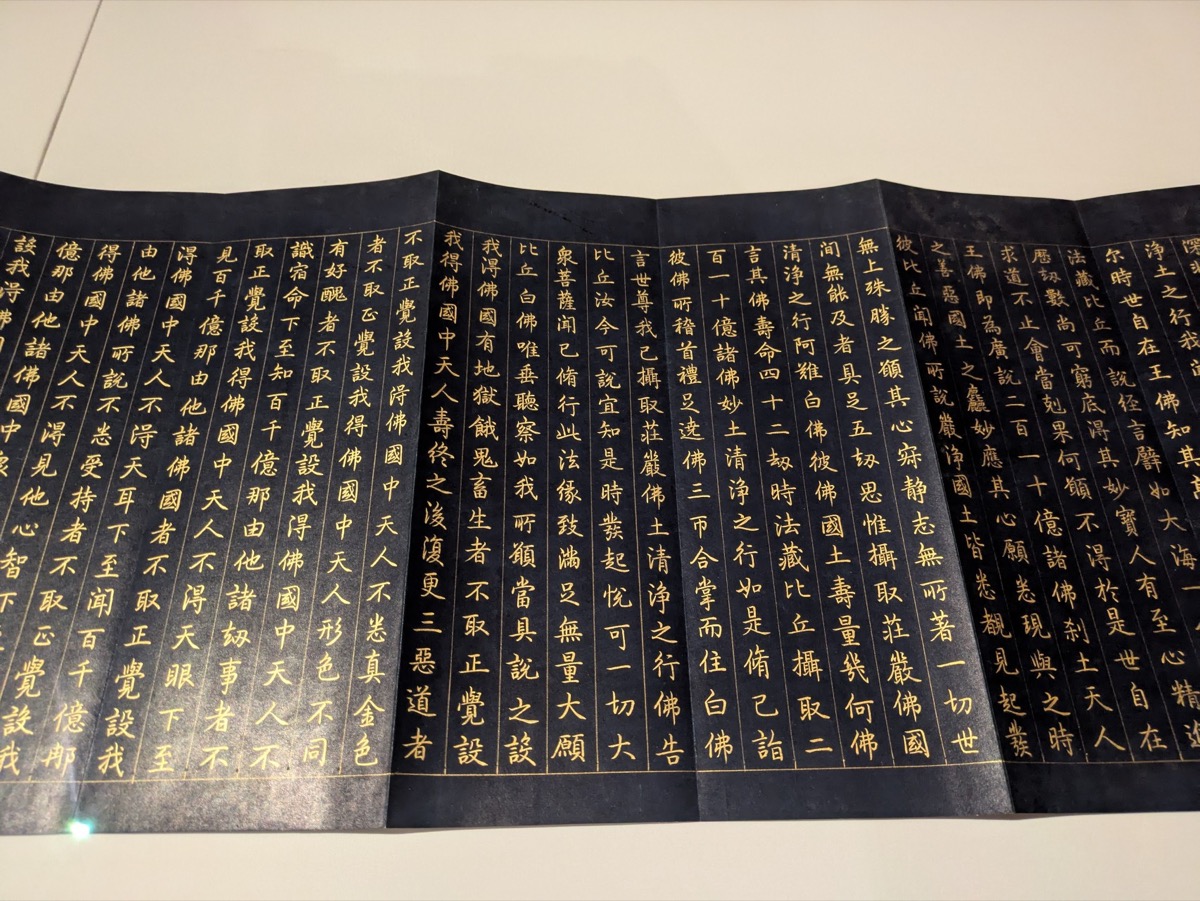 淨土之行我
尔時世自在王佛知其
法藏比丘而說経言譬如大海一
歷劫數尚可窮底得其妙寶人有至心精進
求道不止會當剋果何願不得於是世自在
王佛即為廣說二百一十億諸佛刹土天人
之善惡國土之麤妙應其心願悉現與之時
彼比丘聞佛所說嚴淨國土皆悉覩見起發
無上殊勝之願其心寂静志無所著一切世
間無能及者具足五劫思惟攝取莊嚴佛國
清淨之行阿難白佛彼佛國土壽量幾何佛
言其佛壽命四十二劫時法藏比丘攝取二
百一十億諸佛妙土清淨之行如是脩已詣
彼佛所稽首禮足遶佛三帀合掌而住白佛
言世尊我已攝取莊嚴佛土清淨之行佛告
比丘汝今可說宜知是時發起悅可一切大
衆菩薩聞已脩行此法緣致滿足無量大願
比丘白佛唯垂聽察如我所願當具說之設
我得佛國有地獄餓鬼畜生者不取正覺設
我得佛國中天人壽終之後復更三惡道者
不取正覺設我得佛國中天人不悉真金色
者不取正覺設我得佛國中天人形色不同
有好醜者不取正覺設我得佛國中天人不
識宿命下至知百千億那由他諸劫事者不
取正覺設我得佛國中天人不得天眼下至
見百千億那由他諸佛國者不取正覺設我
得佛國中天人不得天耳下至聞百千億那
由他諸佛所說不悉受持者不取正覺設我
得佛國中天人不得見他心智下
億那由他諸佛國中
設我得佛